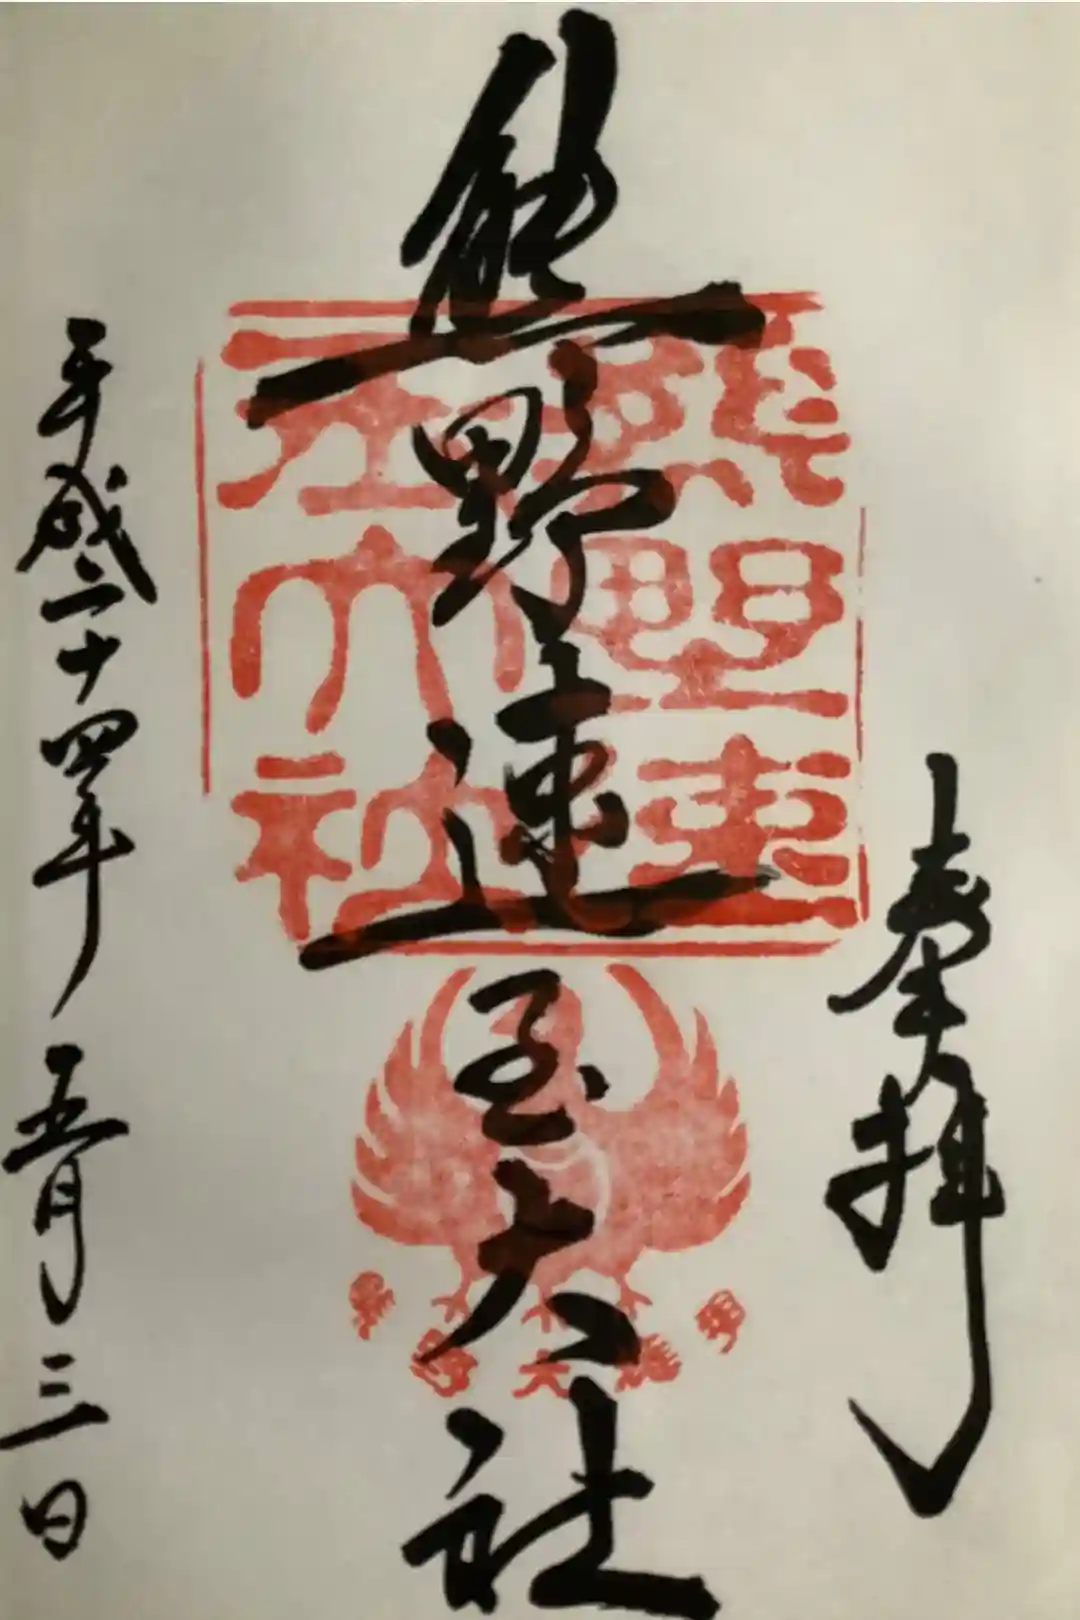 奉拝
熊野速玉大社
熊野速
玉大社
平成二十四年五月三日